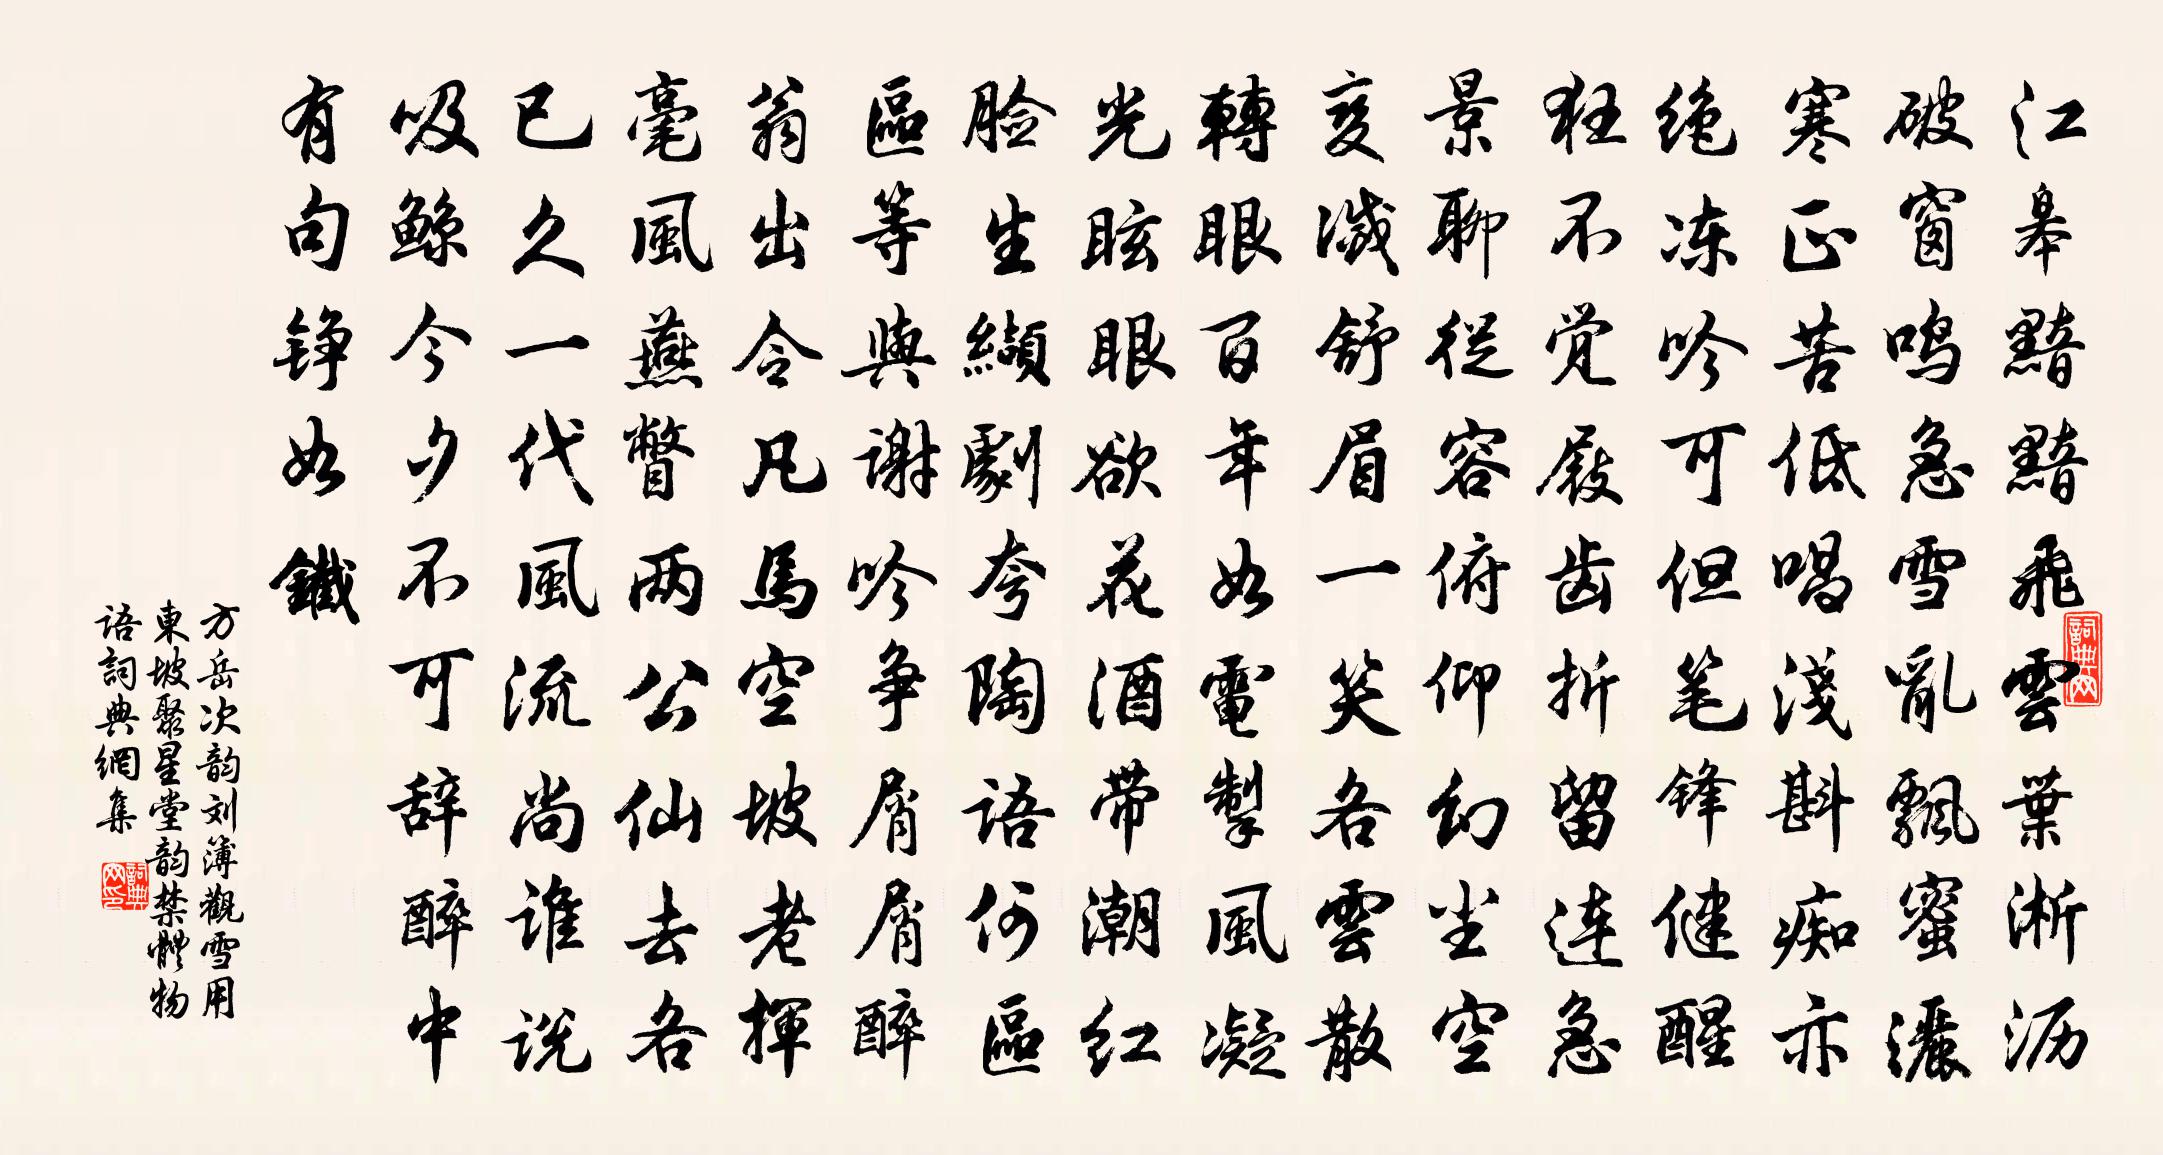 江皋黯黯飛雲葉淅沥
破窗鸣急雪亂飄蜜灑
寒正苦低唱淺斟痴亦
绝冻吟可但笔锋健醒
狂不觉屐齿折留连急
景聊從容俯仰幻尘空
变滅舒眉一笑各雲散
轉眼百年如電掣風凝
光眩眼欲花酒带潮红
脸生纈劇夸陶语何區
區等與谢吟争屑屑醉
翁出令凡馬空坡老揮
毫風燕瞥两公仙去各
已久一代風流尚谁说
吸鲸今夕不可辞醉中
有句铮如鐵
方岳次韵刘簿觀雪用
東坡聚星堂韵禁體物
语詞典網集
詞典网
詞典网印